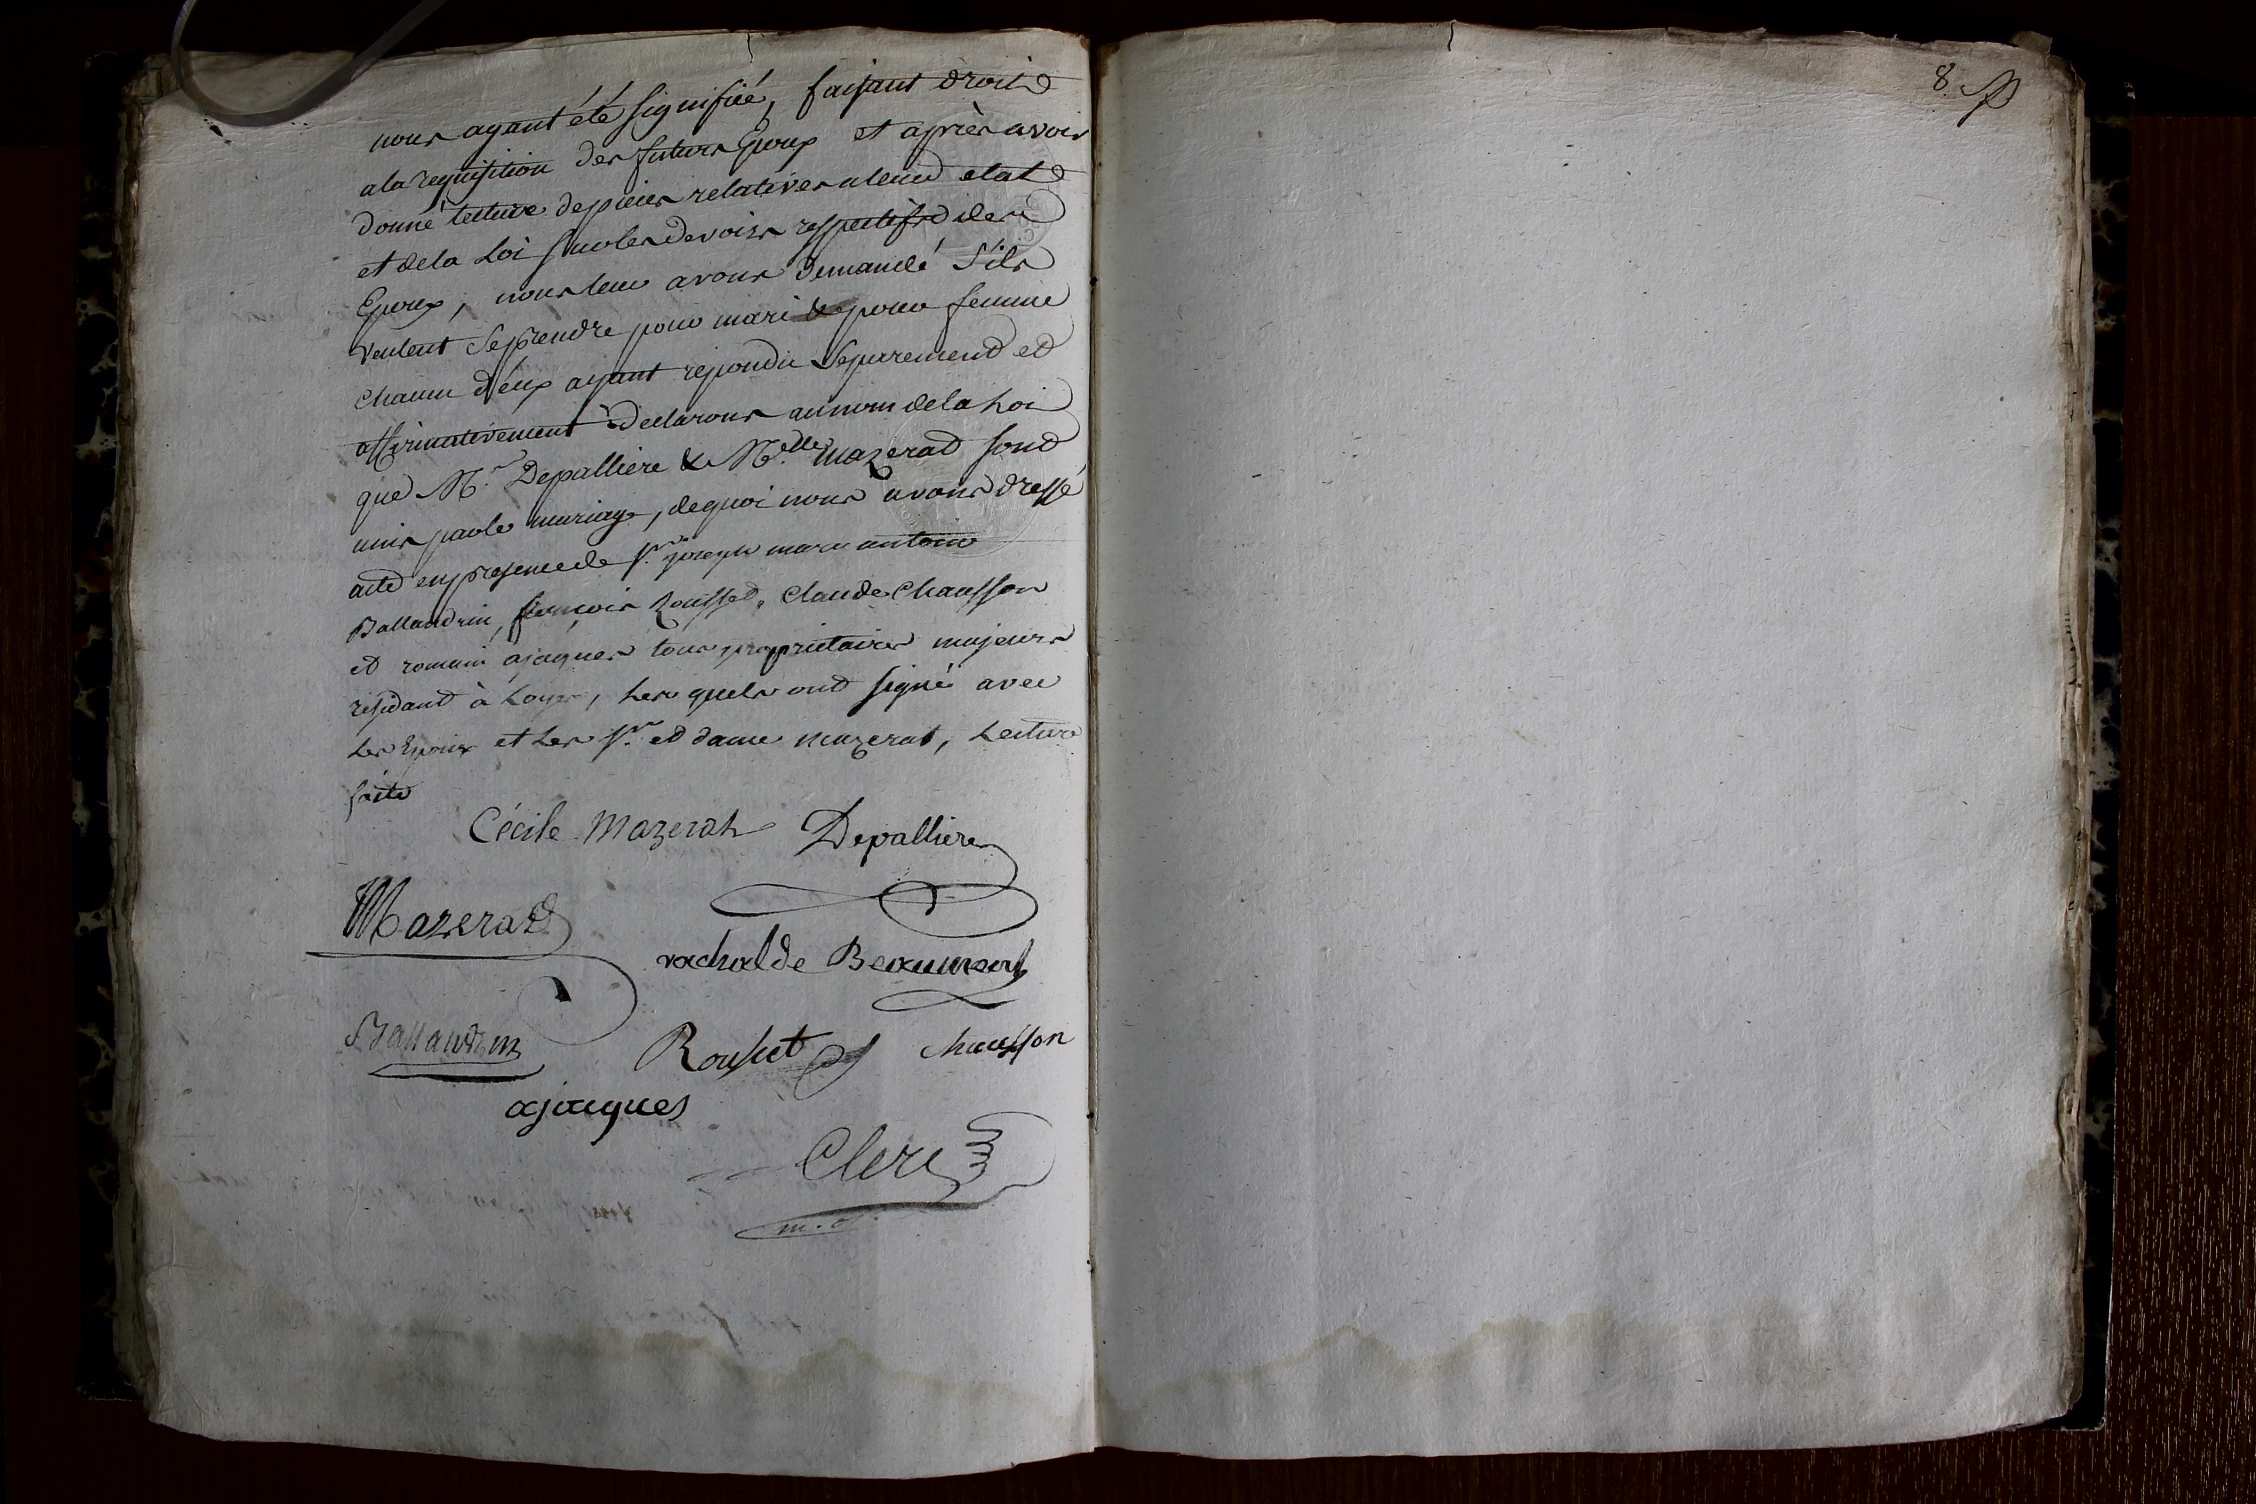 nous ayant été signifiée, faisant droit
a la requisition des futurs Epoux et après avoir
donné lecture de pieces relatives a leur etat
et de la Loi sur les devoirs respectifs des
Epoux, nous leur avons demandé s'ils
veulent se prendre pour mari & pour femme
chacun d'eux ayant repondu separement et
affirmativement declarons au nom de la Loi
que Mr. Depalliere & Melle. mazerat sont
unis par le mariage, de quoi nous avons dressé
acte en presence de Sr. joseph marie antoine
Ballandrin, françois Rousset, Claude Chausson
et romain ajaques tous proprietaires majeurs
residant à Loyes, Les quels ont signé avec
Les Epoux et Les Srs. et dame mazerat, Lecture
faite
Cécile Mazerat Depalliere
Mazerat
vachal de Beaumont
Ballandrin Rousset chausson
ajacques
Clerc
8